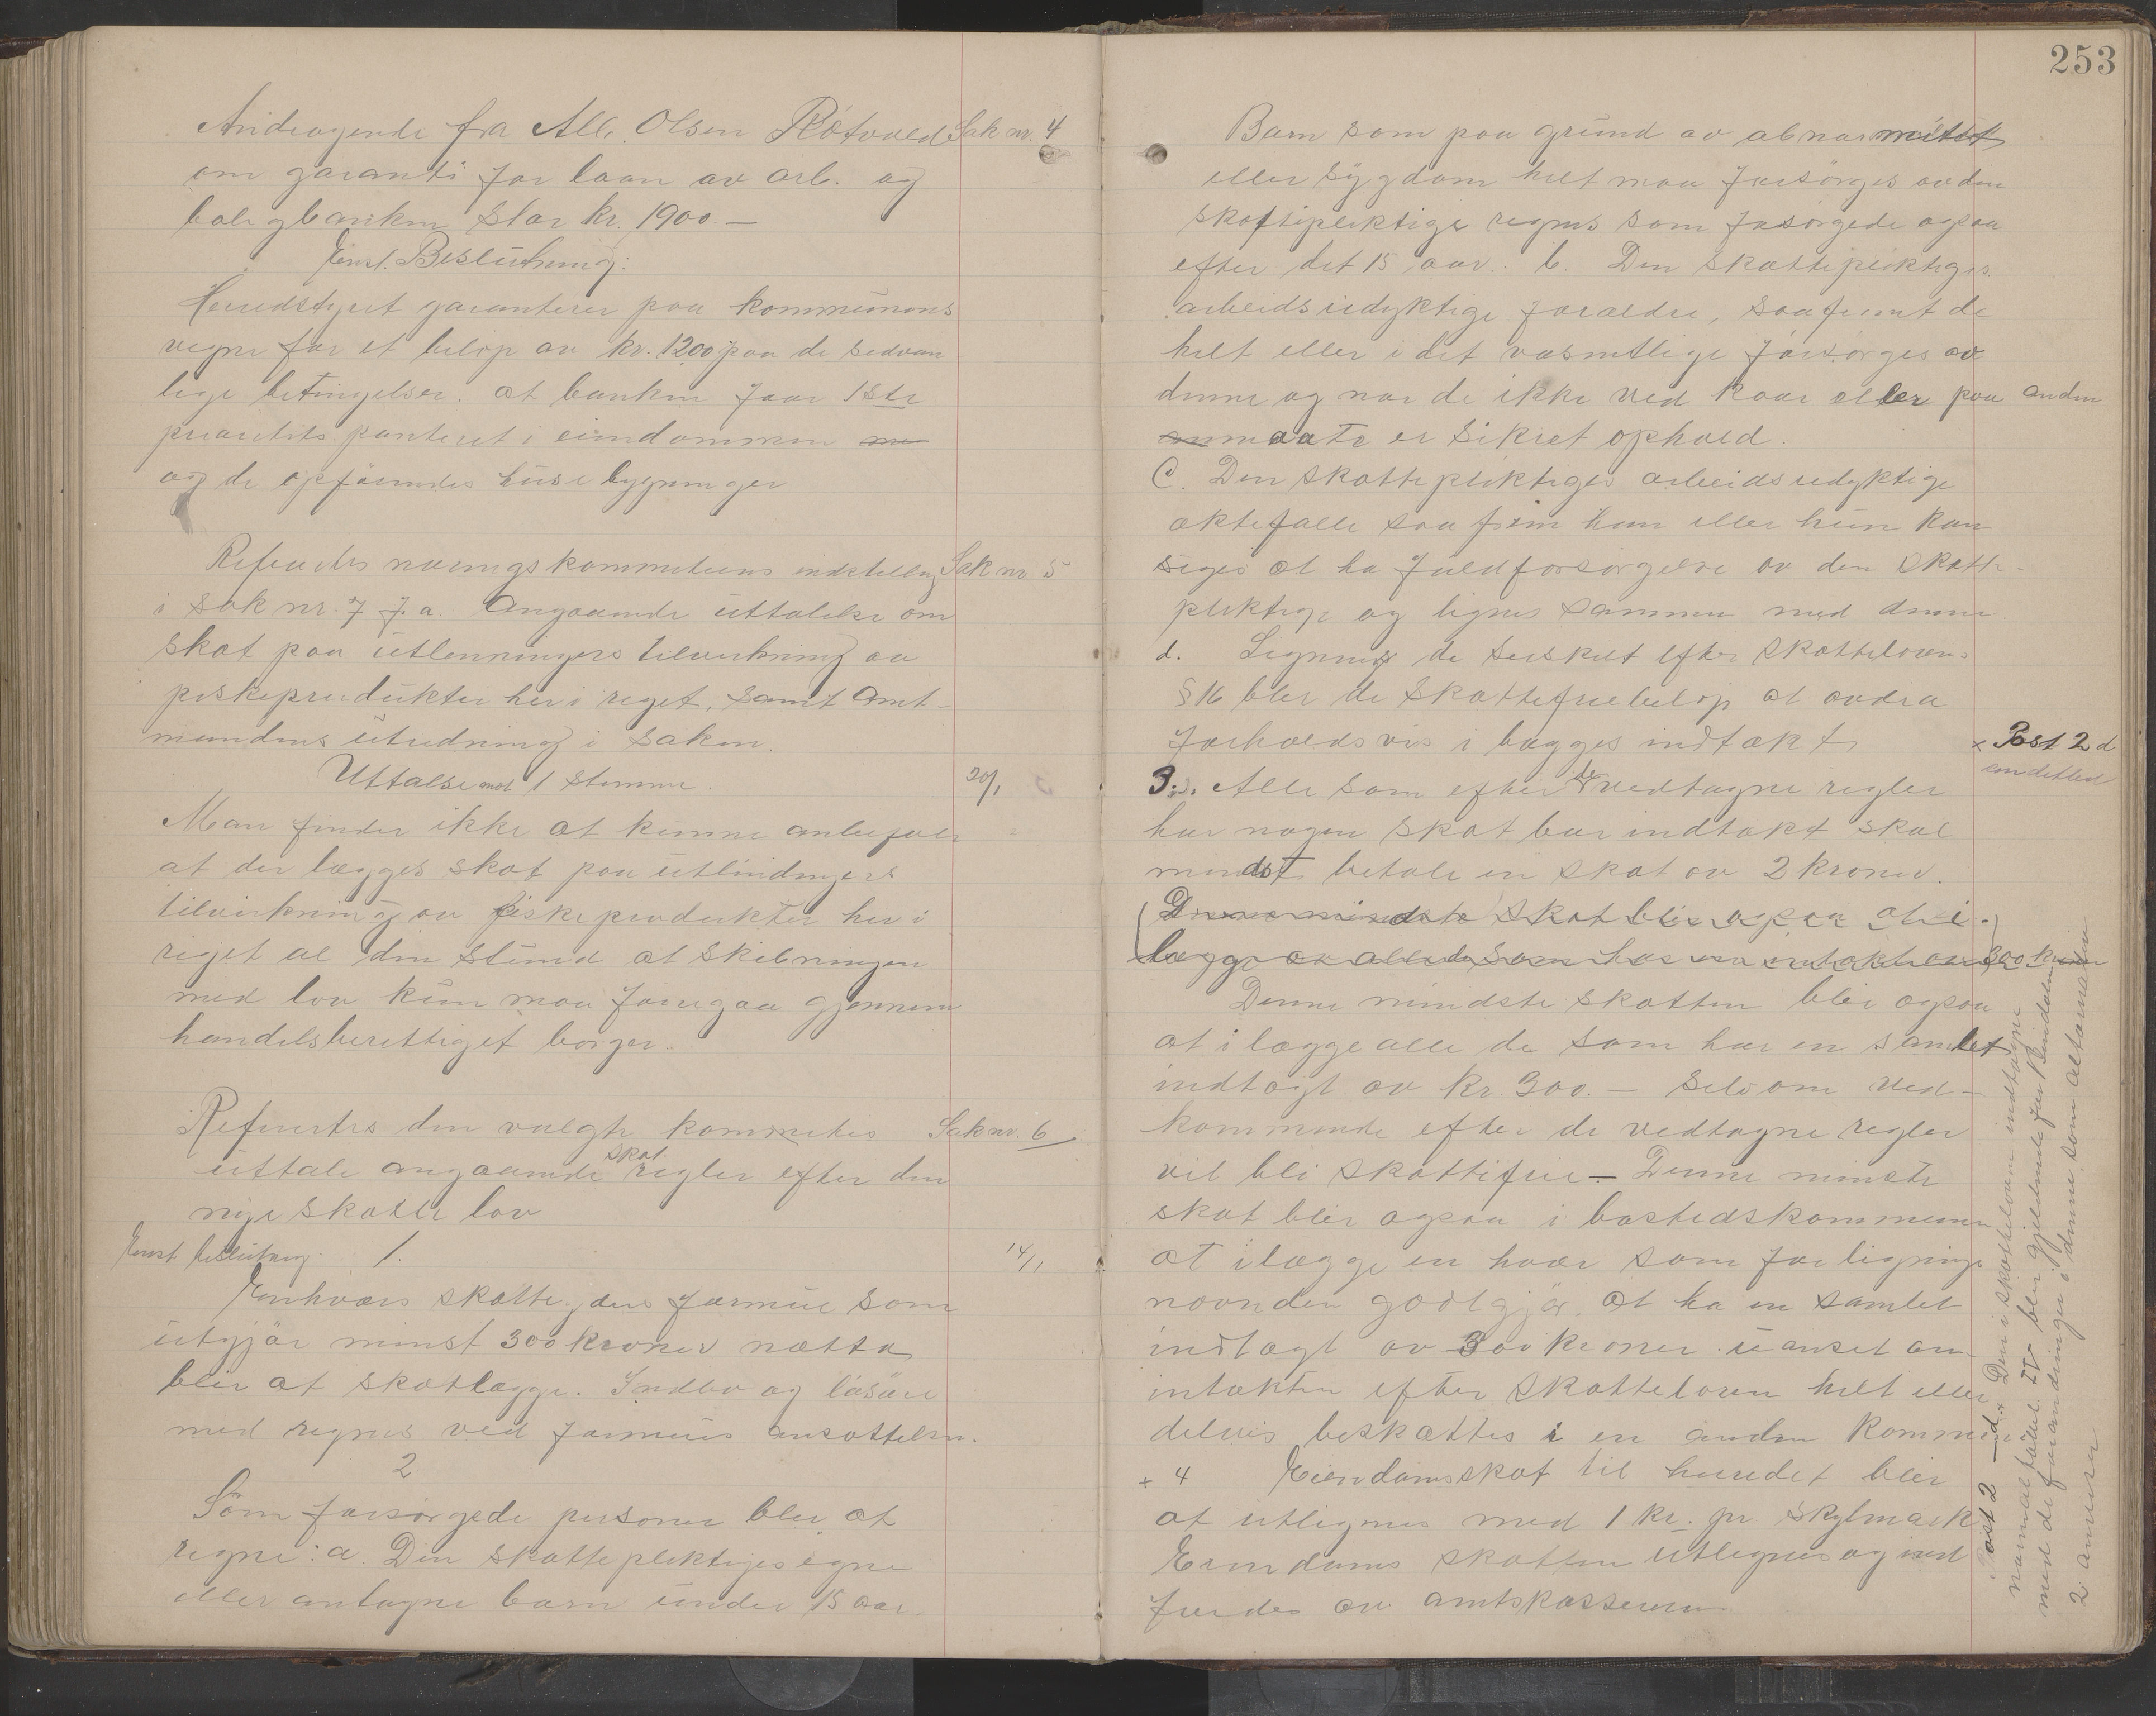 Andragende fra Alb. Olsen Røtvold Sak nr. 4
om garanti for laan av arb. og
boligbanken stor kr. 1900.—
Enst. Beslutning:
Herredstyret garanterer paa kommunens
vegne for et beløp av kr. 1200 paa de sedvan
lige betingelser: at banken faar 1ste
prioritits panteret i eiendommen
og de opførendes huse bygninger
Refertes næringskommiteens indstelling Sak nr 5
i sak nr. 7 f. a. Angaaende uttalelse om
skat paa utlenningers tilvirkning av
fiskeprodukter her i reget, samt Amt-
mandens utredning i saken.
Uttalse mot 1 stemme. 20/1
Man finder ikke at kunne anbefale
at der lægges skat paa utlændingers
tilvirkning av fiskeprodukter her i
riget al den stund at skibningen
med lov kun maa foregaa gjennem
handelsberettiget borger.
Refertes den valgte kommites Sak nr. 6
uttale angaaende skat regler efter den
nye skatte lov
Enst beslutning: 1. 14/1
Enhvers skatteyders formue som
utgjør minst 300 kroner nætto
blir at skatlægge. Indbo og løsøre
med regnes ved formues ansættelsen.
2
Som forsørgede personer bler at
regne: a. Den skattepliktiges egne
eller antagne barn under 15 aar.
253
Barn som paa grund av abnormitet
eller sygdom helt maa forsørges av den
skattepliktige regnes som forsørgede ogsaa
efter det 15 aar. b. Den skattepliktiges
arbeidsudyktige foræeldre, saafremt de
helt eller i det væsentlige forsørges av
denne og nar de ikke ved kaar eller paa anden
maate er sikret ophold.
C. Den skattepliktiges arbeidsudyktige
æktefælle saa frem han eller hun kan
siges at ha fuld forsørgelse av den skatte-
pliktige og lignes sammen med denne.
d. Lignes de særskilt efter skatteloven
§ 16 bler de skattefrie beløp at avdra
forholdsvis i begges indtækt × Post 2 d
3. Alle som efter de vedtagne regler
har nogen skatbar indtækt skal
mindst betale en skat av 2 kroner.
Denne mindste skat blir ogsaa at i-
lægge av alle de som har en intækt av 300 kroner
Denne mindste skatten blir ogsaa
at i lægge alle de som har en samlet
indtægt av kr 300.— selv om ved-
kommende efter de vedtagne regler
vil bli skattefrie — Denne minste
skat bler ogsaa i bostedskommunen
at ilægge en hver som for lignings
nævnden godtgjør at ha en samlet
indtægt av 300 kroner uanset om
intækten efter skatteloven helt eller
delvis beskattes i en anden kommune
+ 4 Eiendomsskat til heredet blir
at utlignes med 1 kr. pr skylmark
Eiendoms skatten utlignes og ind
fordes av amtskassereren
Post 2 — d. × Den i skatteloven indtagne
normal tabel IV blir gjeldende for
med de forandringer i denne som alternativ
2 anviser